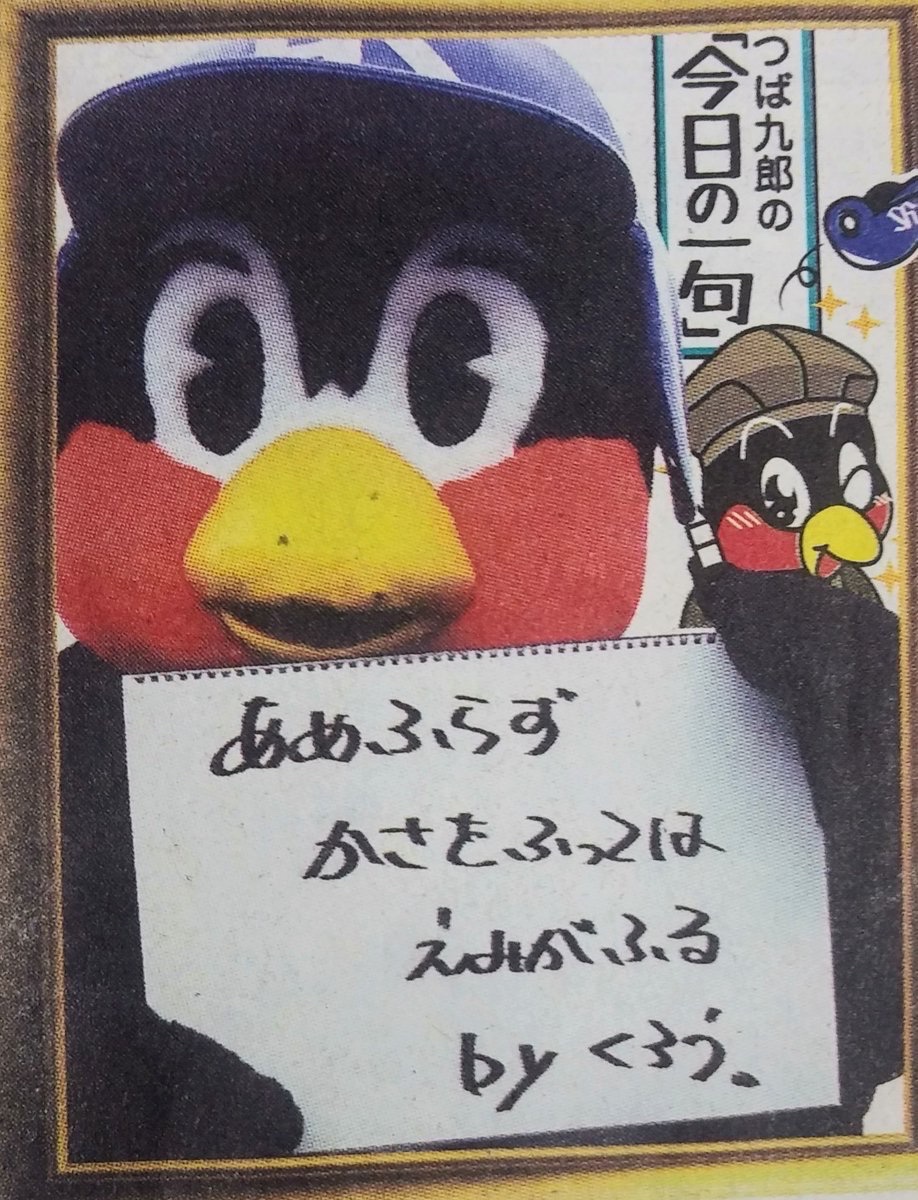 つば九郎の
「今日の一句」
あめふらず
かさをふっては
えみがふる
by くろう。